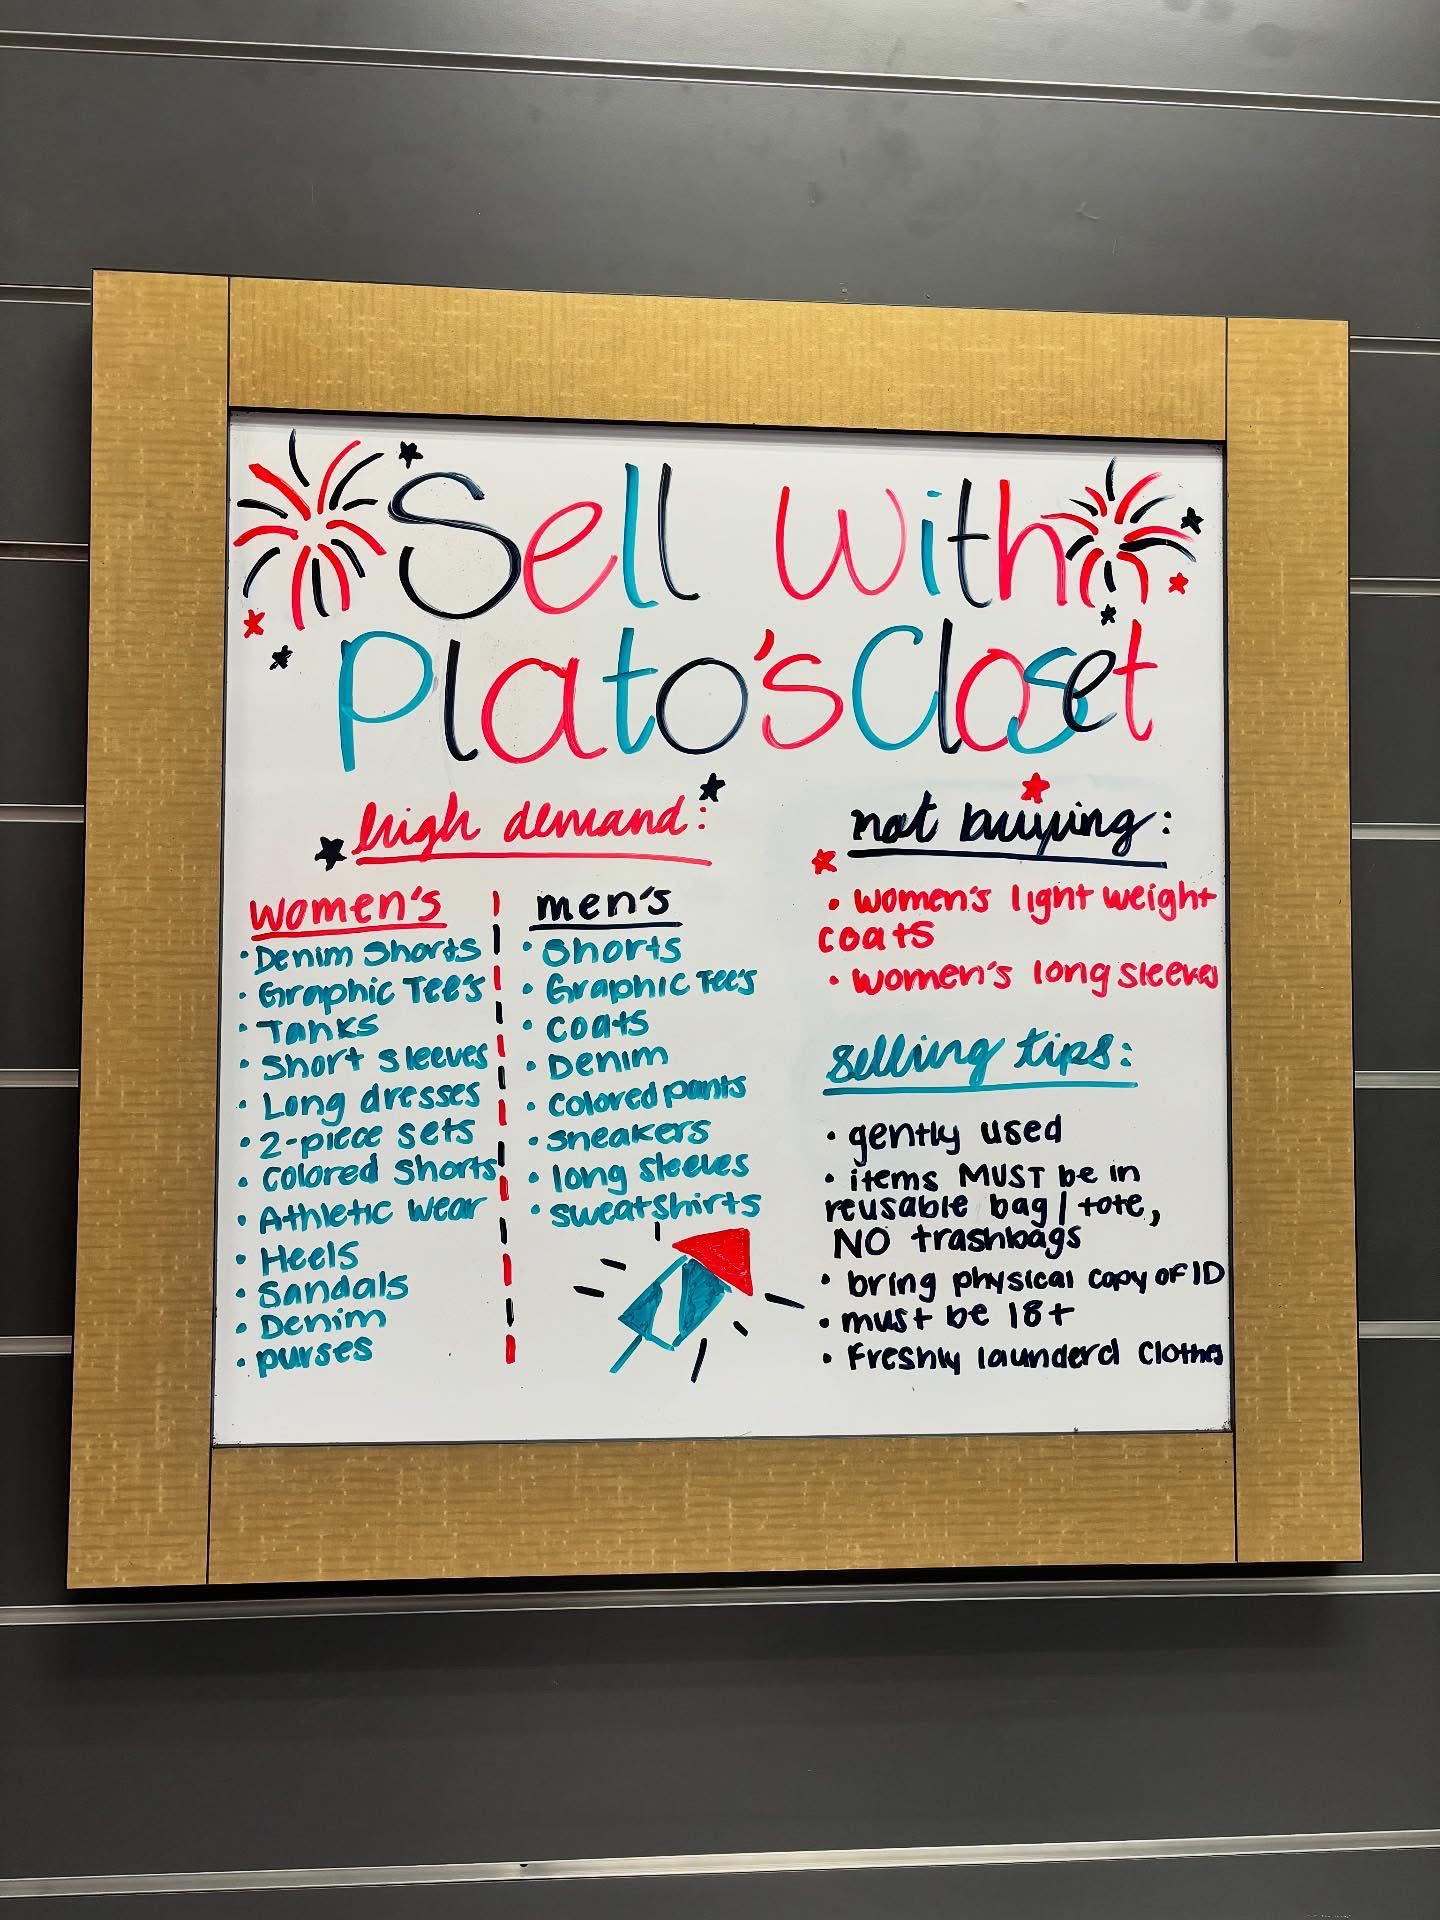 Sell With
Plato's Closet
high demand:
women's
• Denim Shorts
• Graphic Tee's
• Tanks
• Short sleeves
• Long dresses
• 2-piece sets
• Colored Shorts
• Athletic wear
• Heels
• Sandals
• Denim
• purses
men's
• Shorts
• Graphic Tee's
• Coats
• Denim
• colored pants
• sneakers
• long sleeves
• sweatshirts
not buying:
• women's light weight
coats
• women's long sleeves
selling tips:
• gently used
• items MUST be in
reusable bag / tote,
NO trashbags
• bring physical copy of ID
• must be 18+
• Freshly launderd clothes